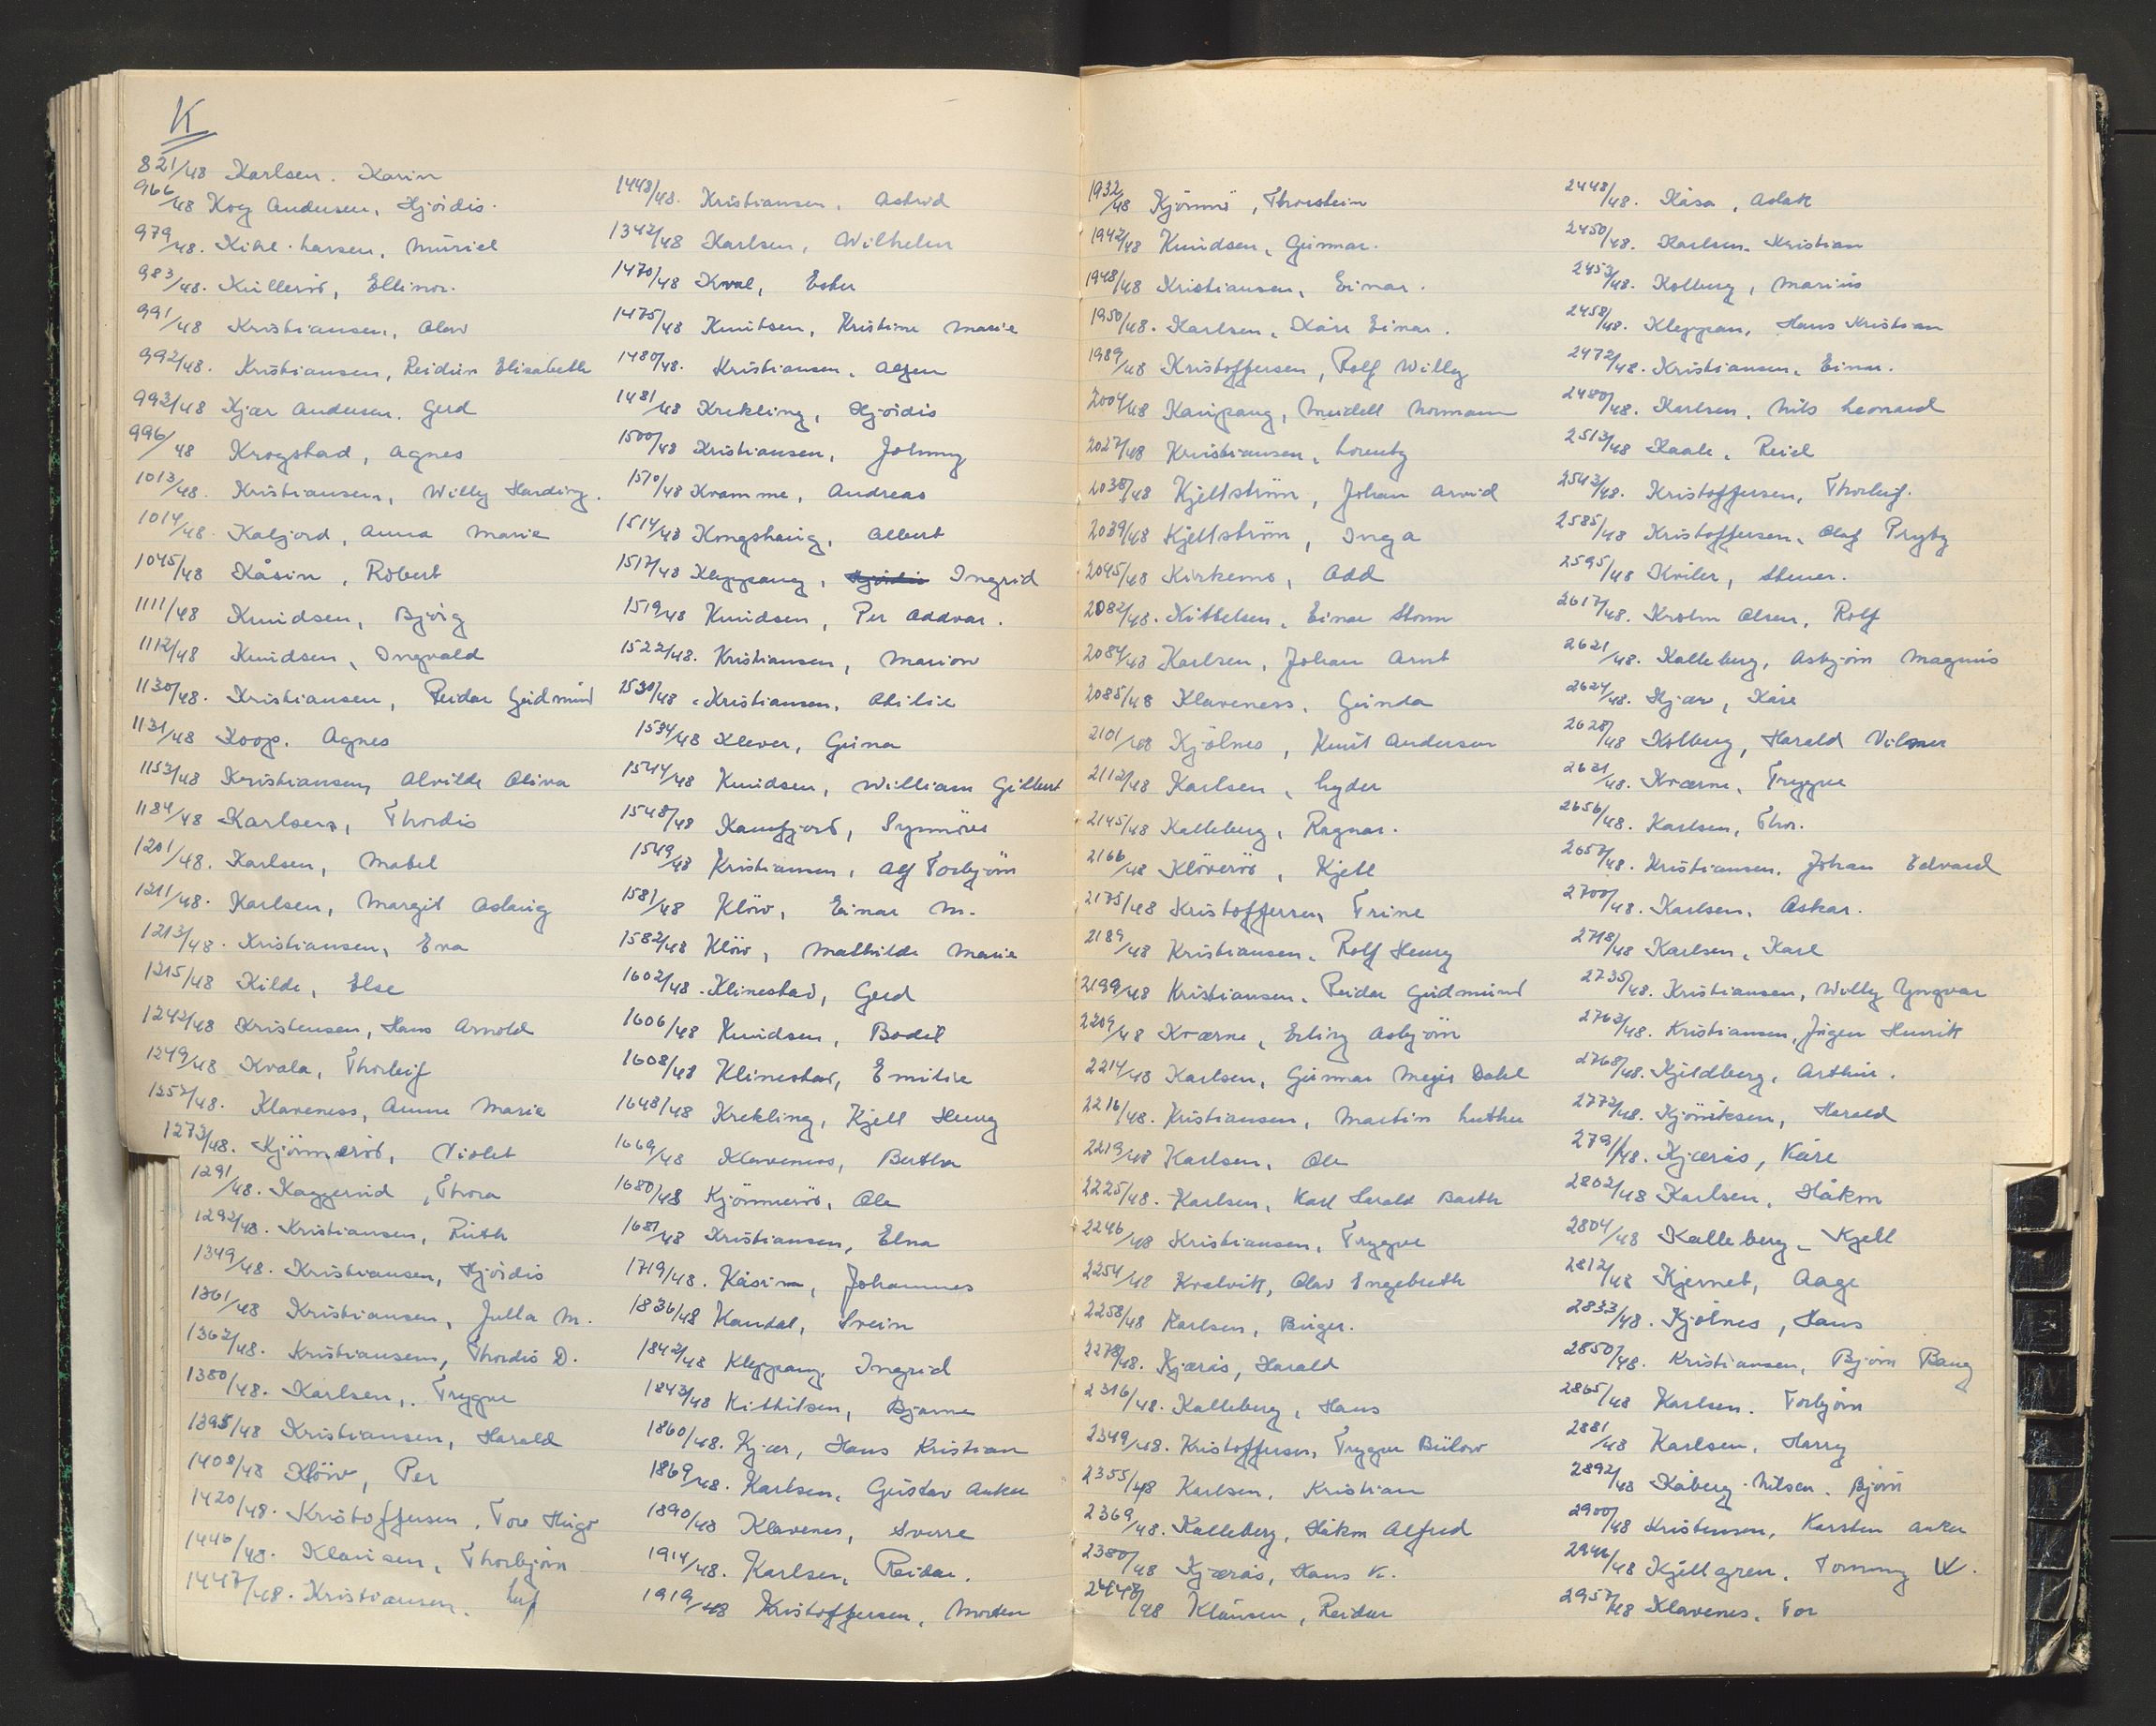 K
821/48 Karlsen. Karin
966/48 Kog Andersen, Hjördis.
979/48. Kihl-Larsen, Muriel
983/48. Kulleröd, Ellinor.
991/48 Kristiansen, Olav
992/48. Kristiansen, Reidun Elisabeth
993/48 Kjær Andersen. Gerd
996/48 Krogstad, Agnes
1013/48. Kristiansen, Willy Harding.
1014/48. Kalfjord, Anna Marie
1045/48 Kåsin, Robert
1111/48 Knudsen, Bjørg
1112/48 Knudsen, Ingvald
1130/48. Kristiansen, Reidar Gudmund
1131/48 Koop. Agnes
1153/48 Kristiansen, Alvilde Oliva
1184/48 Karlsen, Thordis
1201/48. Karlsen, Mabel
1211/48. Karlsen, Margit Aslaug
1213/48. Kristiansen, Eva
1215/48 Kilde, Else
1242/48 Kristensen, Hans Arnold
1249/48 Kvala, Thorleif
1257/48. Klaveness, Anne Marie
1273/48. Kjönneröd, Violet
1291/48. Kaggerud, Thora
1292/48. Kristiansen, Ruth
1349/48. Kristiansen, Hjördis
1361/48 Kristiansen, Julla M.
1362/48. Kristiansen, Thordis D.
1380/48. Karlsen, Trygve
1395/48 Kristiansen, Harald
1408/48 Klöw, Per
1420/48. Kristoffersen, Tor Hugo
1446/48. Klausen, Thorbjørn
1447/48. Kristiansen. Leif
1448/48. Kristiansen, Astrid
1342/48 Karlsen, Wilhelm
1470/48 Kval, Ester
1475/48 Knutsen, Kristine Marie
1480/48. Kristiansen, Asjen
1481/48 Krekling, Hjördis
1500/48 Kristiansen, Johnny
1510/48 Kramme, Andreas
1514/48 Kongshaug, Albert
1517/48 Kleppang, Hjördis Ingrid
1519/48 Knudsen, Per Oddvar.
1522/48. Kristiansen, Marion
1530/48 Kristiansen, Otilie
1534/48 Klever, Guna
1544/48 Knudsen, William Gilbert
1548/48 Kamfjord, Synnöve
1549/48 Kristiansen, Alf Torbjörn
1581/48 Klöw, Einar M.
1582/48 Klöw, Mathilde Marie
1602/48. Klinestad, Gerd
1606/48 Knudsen, Bodil
1608/48 Klinestad, Emilie
1648/48 Krekling, Kjell Henry
1669/48 Klaveness, Berthe
1680/48 Kjönneröd, Ole
1681/48 Kristiansen, Elna
1719/48. Kåsin, Johannes
1836/48 Kandal, Svein
1842/48 Kleppang, Ingrid
1843/48 Kittilsen, Bjarne
1860/48. Kjær, Hans Kristian
1869/48. Karlsen, Gustav Anker
1890/48 Klavenes, Sverre
1914/48. Karlsen, Reidar.
1919/48 Kristoffersen, Morten
1932/48 Kjönnö, Thorstein
1942/48 Knudsen, Gunnar.
1948/48 Kristiansen, Einar.
1950/48. Karlsen, Kåre Einar.
1989/48 Kristoffersen, Rolf Willy
2004/48 Kaupang, Meidell Normann
2027/48 Kristiansen, Lorentz
2038/48 Kjellström, Johan Arvid
2039/48 Kjellström, Inga
2045/48 Kirkemo, Odd
2082/48. Kittelsen, Einar Storm
2084/48 Karlsen, Johan Arnt
2085/48 Klaveness, Gunda
2101/48 Kjölnes, Knut Andersen
2112/48 Karlsen, Lyder
2145/48 Kalleberg, Ragnar.
2166/48 Klöveröd, Kjell
2175/48 Kristoffersen, Trine
2189/48 Kristiansen, Rolf Henry
2199/48 Kristiansen, Reidar Gudmund
2209/48 Kværne, Erling Asbjörn
2214/48 Karlsen, Gunnar Mejer Dahl
2216/48. Kristiansen, Martin Luther
2219/48 Karlsen, Ole
2225/48. Karlsen, Karl Harald Barth
2246/48 Kristiansen, Trygve
2254/48 Kvalvik, Olav Engebreth
2258/48 Karlsen, Birger.
2278/48. Kjærås, Harald
2316/48. Kalleberg, Hans
2349/48. Kristoffersen, Trygve Bülow
2355/48 Karlsen, Kristian
2369/48. Kalleberg, Håkon Alfred
2380/48 Kjærås, Hans K.
2448/48 Klausen, Reidar
2448/48. Kåsa, Aslak
2450/48. Karlsen, Kristian
2453/48. Kolberg, Marius
2458/48. Kleppan, Hans Kristian
2472/48. Kristiansen, Einar.
2480/48. Karlsen, Nils Leonard
2513/48 Kaale, Reiel
2543/48. Kristoffersen, Thorleif.
2585/48 Kristoffersen, Olaf Prytz
2595/48 Kviler, Stener.
2617/48. Krohn Olsen, Rolf
2621/48. Kalleberg, Asbjørn Magnus
2624/48. Kjær, Kåre
2628/48 Kolberg, Harald Vilmer
2631/48. Kværne, Trygve
2656/48. Karlsen, Thor.
2657/48. Kristiansen, Johan Edvard
2700/48. Karlsen, Oskar.
2718/48 Karlsen, Karl
2735/48. Kristiansen, Willy Yngvar
2762/48. Kristiansen, Jörgen Henrik
2768/48. Kjeldberg, Arthur.
2772/48. Kjöniksen, Harald
2791/48. Kjærås, Kåre
2802/48 Karlsen, Håkon
2804/48 Kalleberg, Kjell
2812/48 Kjernet, Aage
2833/48. Kjölnes, Hans
2850/48. Kristiansen, Björn Bang
2865/48 Karlsen. Torbjörn
2881/48 Karlsen, Harry
2892/48 Kåberg-Nilsen. Björn
2900/48 Kristensen, Karsten Anker
2946/48 Kjellgren, Tommy W.
2957/48 Klavenes, Tor